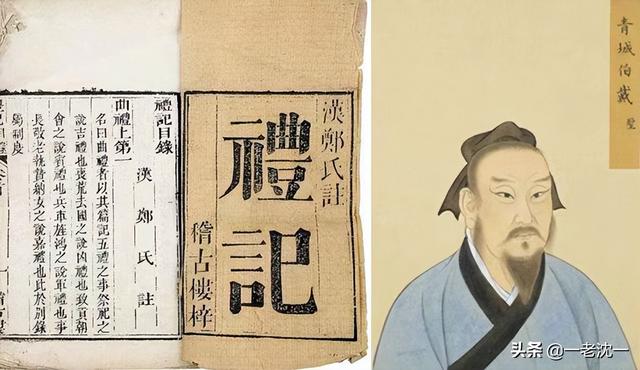 漢鄭氏註
禮記
稽古樓梓
禮記目錄
曲禮上第一
漢鄭氏註
名曰曲禮者以其篇記五禮之事祭祀之
說吉禮也喪荒去國之說凶禮也致貢朝
會之說賓禮也兵車旌鴻之說軍禮也事
長敬老執贄納女之說嘉禮也此於別錄
屬制度
青城伯戴聖
头条 @一老沈一